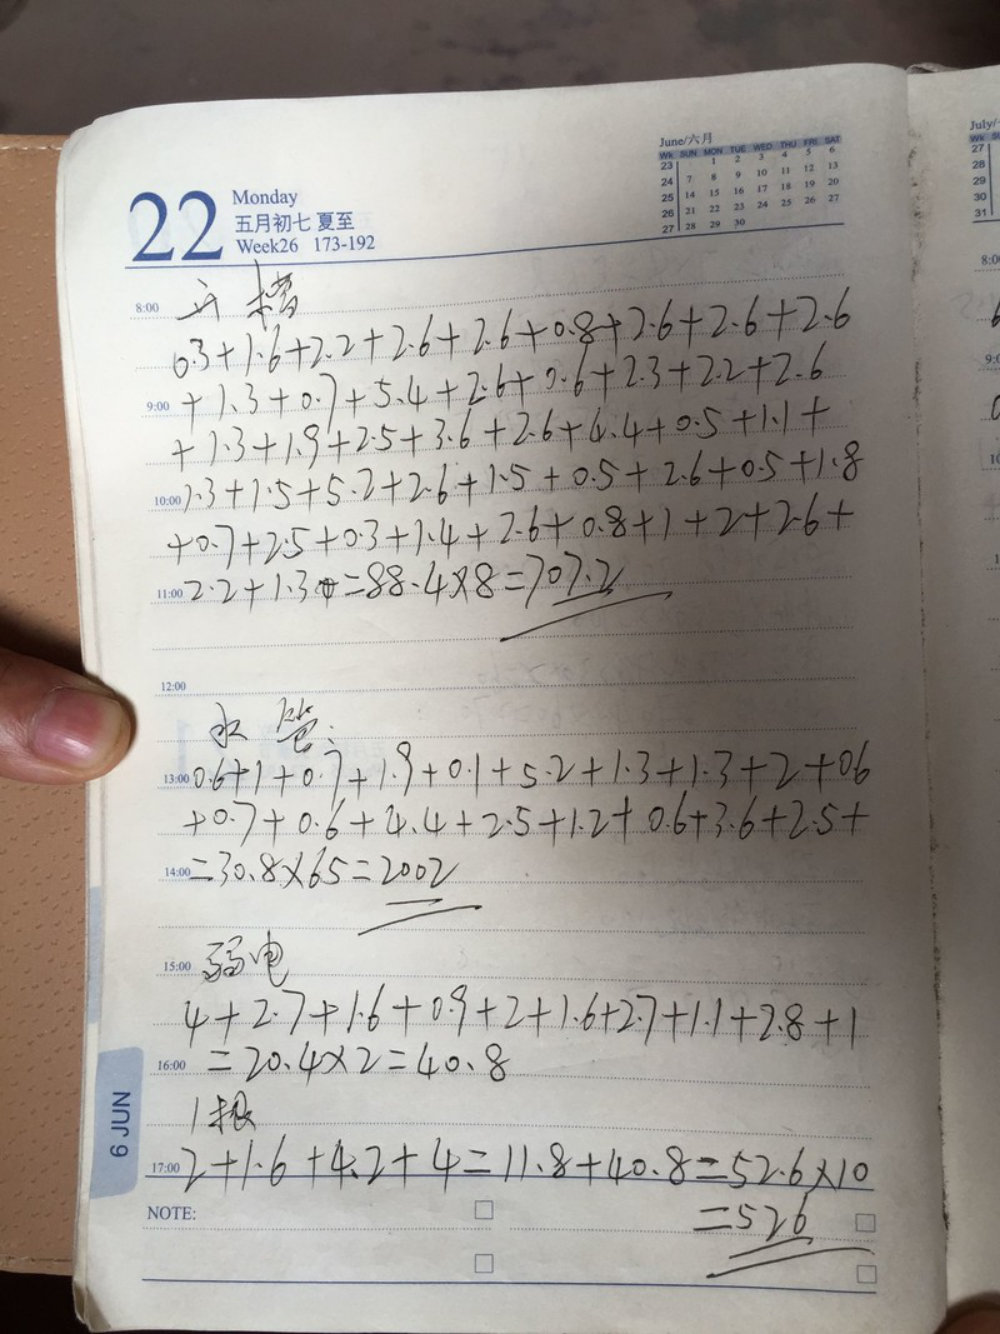 22
Monday
五月初七 夏至
Week26 173-192
June/六月
Wk SUN MON TUE WED THU FRI SAT
23 1 2 3 4 5 6
24 7 8 9 10 11 12 13
25 14 15 16 17 18 19 20
26 21 22 23 24 25 26 27
27 28 29 30
8:00 开槽
0.3+1.6+2.2+2.6+2.6+0.8+2.6+2.6+2.6
9:00 +1.3+0.7+5.4+2.6+0.6+2.3+2.2+2.6
+1.3+1.9+2.5+3.6+2.6+4.4+0.5+1.1+
10:00 1.3+1.5+5.2+2.6+1.5+0.5+2.6+0.5+1.8
+0.7+2.5+0.3+1.4+2.6+0.8+1+2+2.6+
11:00 2.2+1.3=88.4×8=707.2
12:00
水管:
13:00 0.6+1+0.7+1.9+0.1+5.2+1.3+1.3+2+0.6
+0.7+0.6+4.4+2.5+1.2+0.6+3.6+2.5+
14:00 =30.8×65=2002
15:00 弱电
4+2.7+1.6+0.9+2+1.6+2.7+1.1+2.8+1
16:00 =20.4×2=40.8
1根
17:00 2+1.6+4.2+4=11.8+40.8=52.6×10
=526
NOTE:
6 JUN
July/
Wk
27
28
29
30
31
8:00